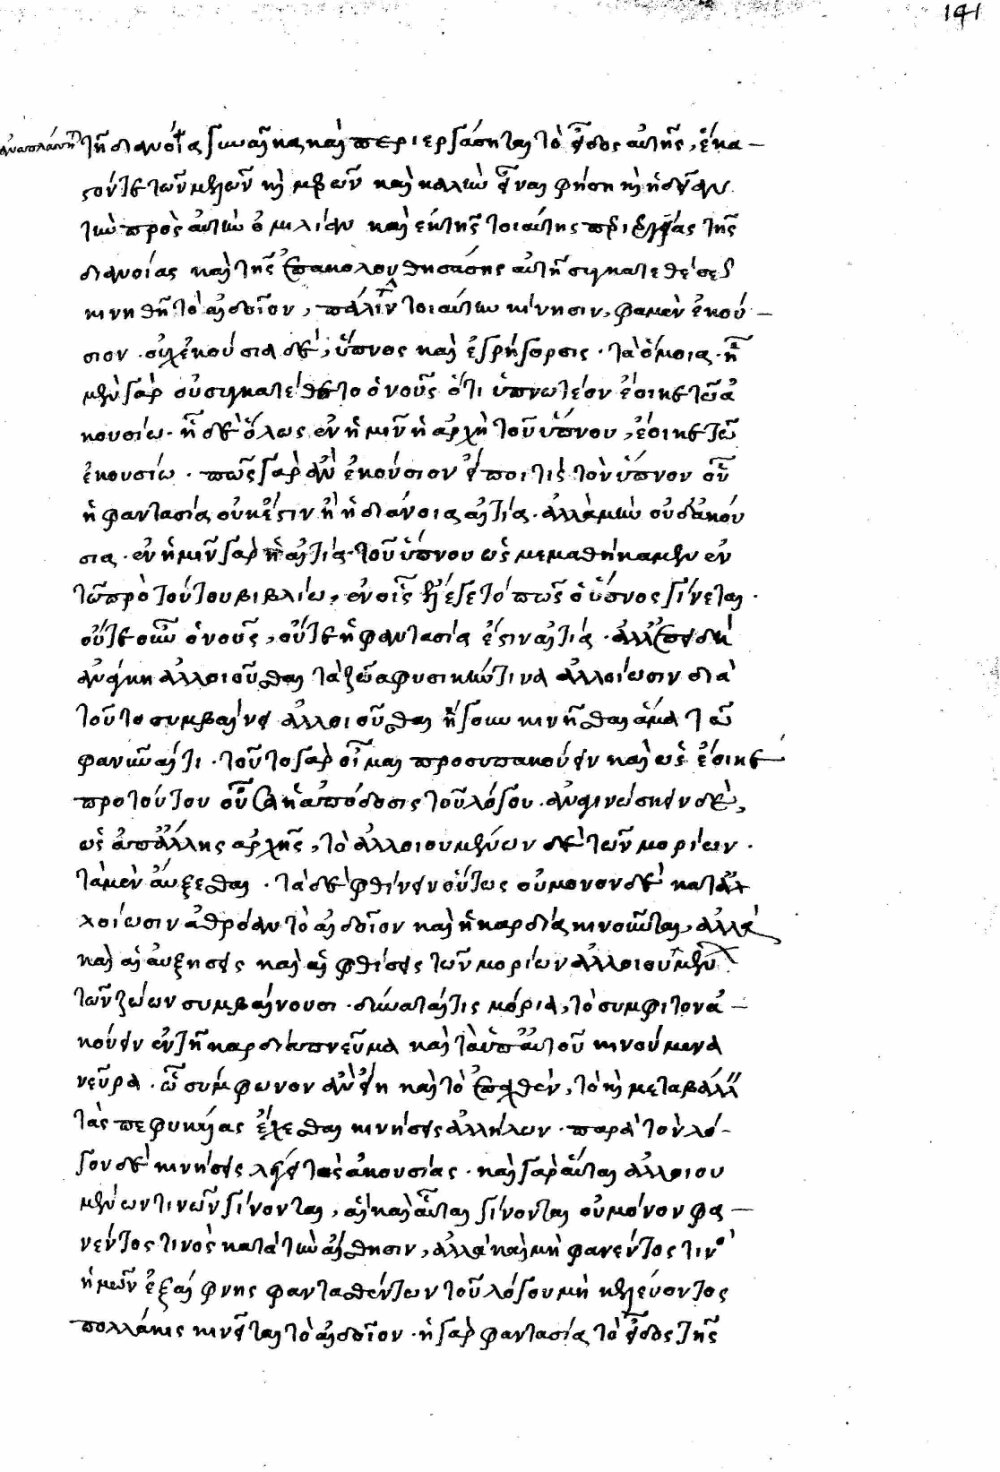 141
τῇ διανοίᾳ γυναῖκα καὶ περιεργάσηται τὸ εἶδος αὐτῆς, ἕκα-
στόν τε τῶν μελῶν καὶ μερῶν καὶ καλὸν εἶναι φήσῃ καὶ ἡδεῖαν
τὴν πρὸς αὐτὴν ὁμιλίαν καὶ ἐκ τῆς τοιαύτης περιεργίας τῆς
διανοίας καὶ τῆς ἐπακολουθησάσης αὐτῇ συγκαταθέσεως
κινηθῇ τὸ αἰδοῖον, πάλιν τὴν τοιαύτην κίνησιν, φαμὲν ἑκού-
σιον. οὐχ ἑκούσια δὲ, ὕπνος καὶ ἐγρήγορσις. τὰ ὅμοια. ᾗ
μὲν γὰρ οὐ συγκατέθετο ὁ νοῦς ὅτι ὑπνωτέον ἔοικε τῷ ἀ
κουσίῳ. ᾗ δὲ ὅλως ἐν ἡμῖν ἡ ἀρχὴ τοῦ ὕπνου, ἔοικε τῷ
ἑκουσίῳ. πῶς γὰρ ἂν ἑκούσιον εἴποι τις τὸν ὕπνον οὗ
ἡ φαντασία οὐκ ἔστιν ἢ ἡ διάνοια αἰτία. ἀλλὰ μὴν οὐδ' ἀκού
σια. ἐν ἡμῖν γὰρ ἡ αἰτία τοῦ ὕπνου ὡς μεμαθήκαμεν ἐν
τῷ πρὸ τούτου βιβλίῳ, ἐν οἷς ἐλέγετο πῶς ὁ ὕπνος γίνεται.
οὔτε οὖν ὁ νοῦς, οὔτε ἡ φαντασία ἐστιν αἰτία. ἀλλ' ἐπειδὴ
ἀνάγκη ἀλλοιοῦσθαι τὰ ζῷα φυσικήν τινα ἀλλοίωσιν διὰ
τοῦτο συμβαίνει ἀλλοιοῦσθαι ἤγουν κινῆσθαι ἅμα τῷ
φανῆναί τι. τοῦτο γὰρ οἶμαι προσυπακούειν καὶ ὡς ἔοικε
προ τούτου οὖσα ἡ ἀπόδοσις τοῦ λόγου. ἀναγινώσκειν δὲ,
ὡς ἀπ' ἄλλης ἀρχῆς, τὸ ἀλλοιουμένων δὲ τῶν μορίων.
τὰ μὲν αὔξεσθαι. τὰ δὲ φθίνειν οὕτως οὐ μόνον δὲ κατὰ ἀλ
λοίωσιν ἀθρόαν τὸ αἰδοῖον καὶ ἡ καρδία κινοῦνται, ἀλλὰ
καὶ αἱ αὐξήσεις καὶ αἱ φθίσεις τῶν μορίων ἀλλοιουμένων
τῶν ζῴων συμβαίνουσι. δύναται τις μόρια, τὸ σύμφυτον ἀ-
κούειν ἐν τῇ καρδίᾳ πνεῦμα καὶ τὰ ὑπ' αὐτοῦ κινούμενα
νεῦρα. ᾧ σύμφωνον ἂν εἴη καὶ τὸ ἐπαχθὲν, τὸ καὶ μεταβάλλειν
τὰς πεφυκυίας ἔχεσθαι κινήσεις ἀλλήλων. παρὰ τὸν λό-
γον δὲ κινήσεις λέγει τὰς ἀκουσίας. καὶ γὰρ αὗται ἀλλοιου
μένων τινῶν γίνονται, αἳ καὶ αὗται γίνονται οὐ μόνον φα-
νέντος τινὸς κατὰ τὴν αἴσθησιν, ἀλλὰ καὶ μὴ φανέντος τινὸς
ἡμῶν ἐξαίφνης φαντασθέντων τοῦ λόγου μὴ κελεύοντος
πολλάκις κινεῖται τὸ αἰδοῖον. ἡ γὰρ φαντασία τὸ εἶδος τῆς